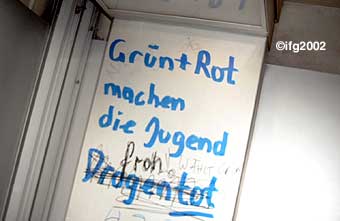 ©ifg2002
Grün+Rot
machen
die Jugend
froh!
Drogentot